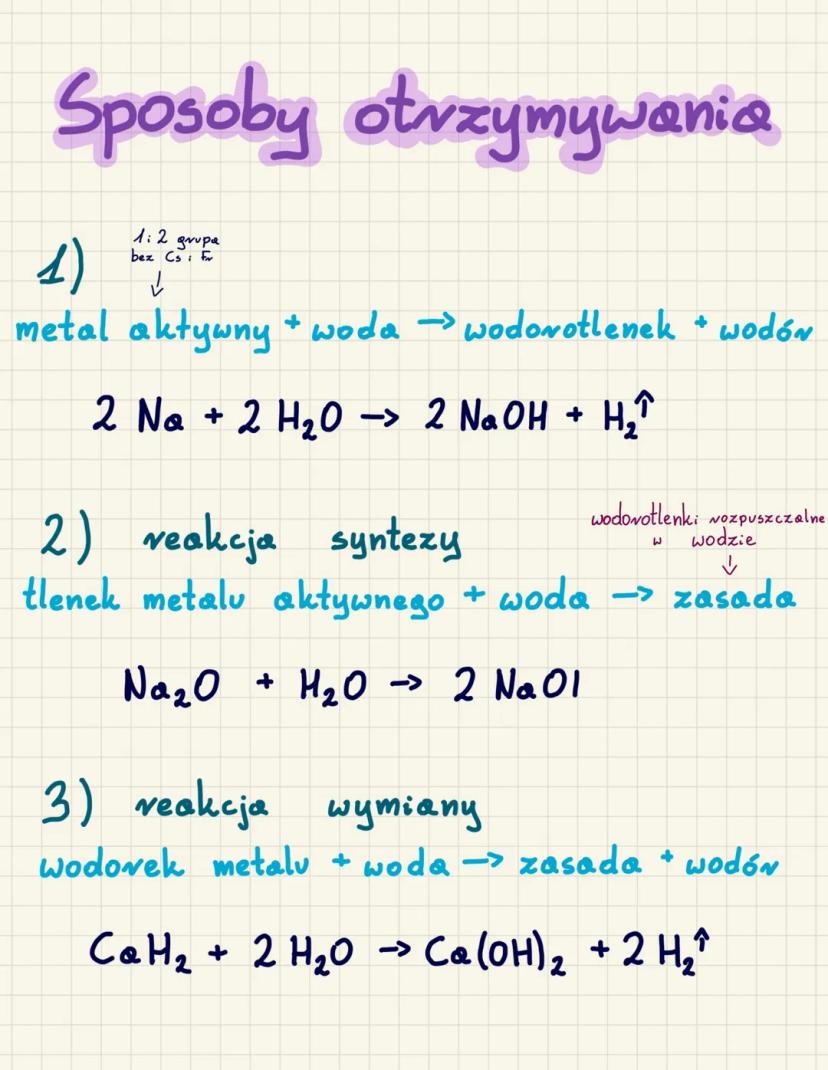 Sposoby otrzymywania
1)
1 i 2 grupa
bez Cs i Fr
↓
metal aktywny + woda → wodorotlenek + wodór
2 Na + 2 H₂O → 2 NaOH + H₂↑
2) reakcja syntezy
wodorotlenki rozpuszczalne
w wodzie
↓
tlenek metalu aktywnego + woda → zasada
Na₂O + H₂O → 2 NaOl
3) reakcja wymiany
wodorek metalu + woda → zasada + wodór
CaH₂ + 2 H₂O → Ca(OH)₂ + 2 H₂↑